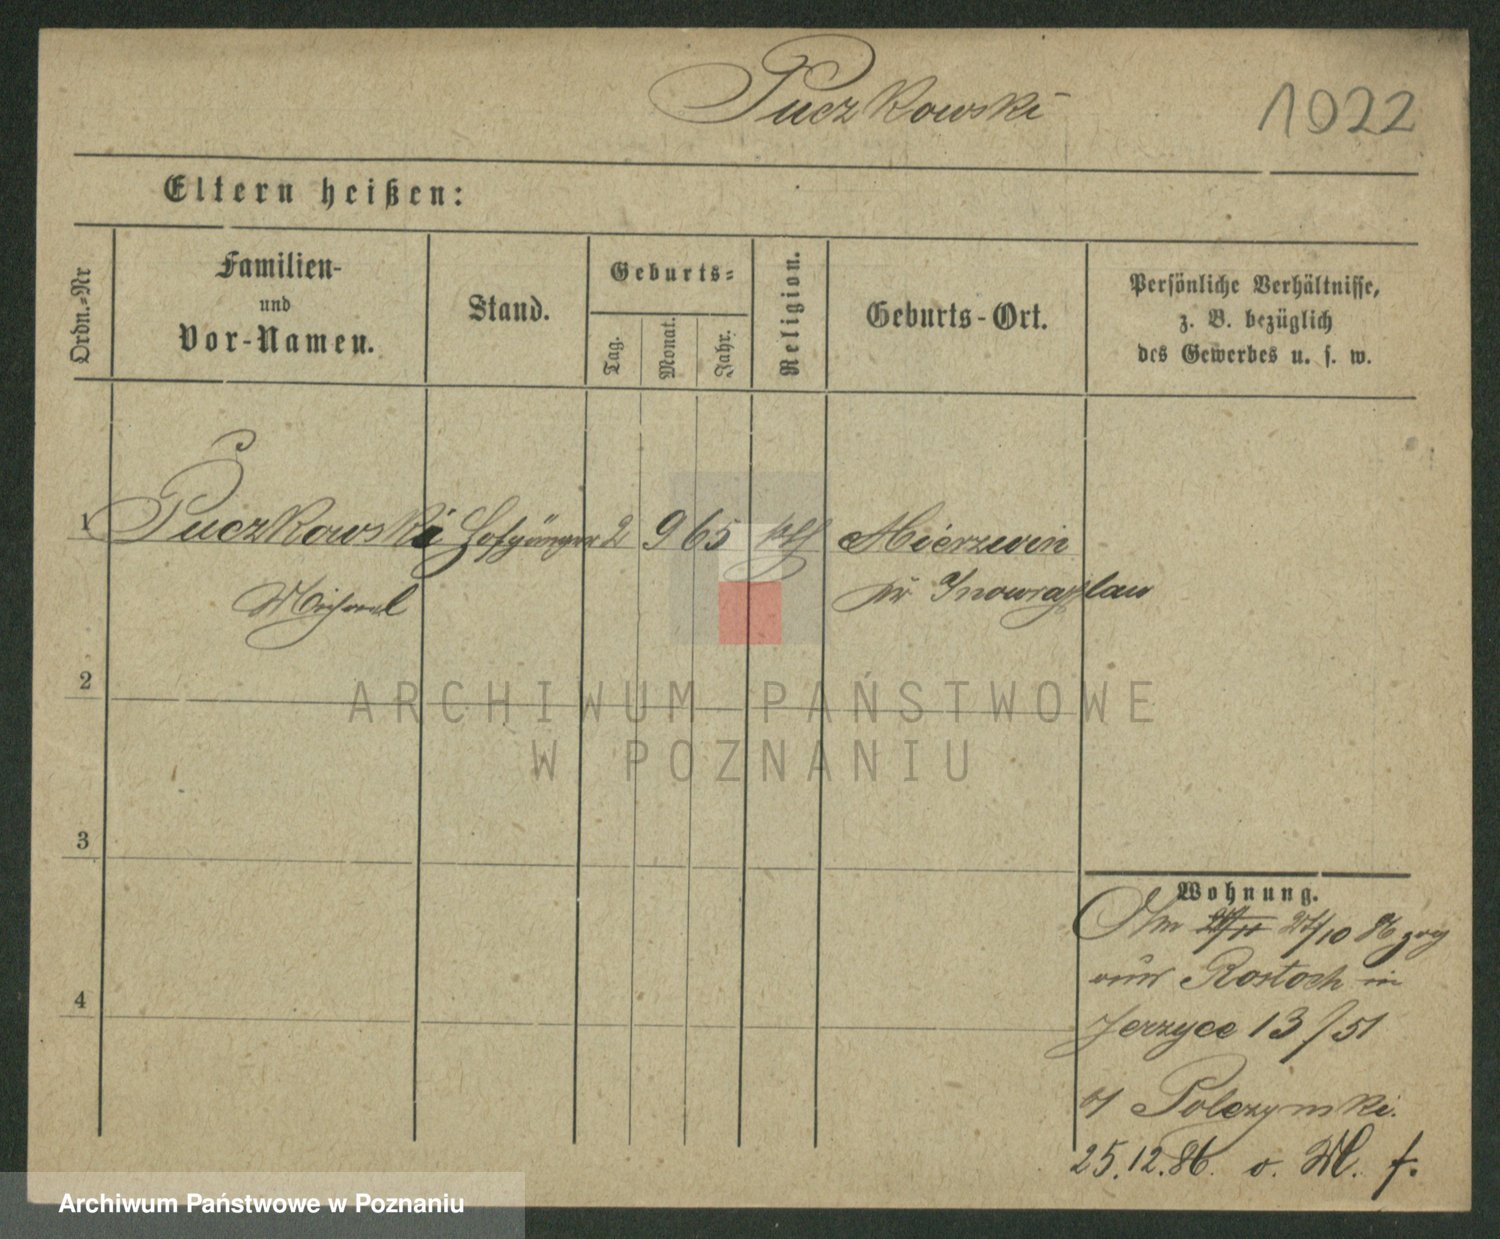 Puczkowski
1022
Eltern heißen:
Ordn.-Nr
Familien-
und
Vor-Namen.
Stand.
Geburts-
Tag.
Monat.
Jahr.
Religion.
Geburts-Ort.
Persönliche Verhältnisse,
z. B. bezüglich
des Gewerbes u. s. w.
1 Puczkowski Hofgänger 2 9 65 kth Mierzwin
Michael pr Inowrazlaw
2
ARCHIWUM PAŃSTWOWE
W POZNANIU
3
4
Wohnung.
10 86 zog
von Rostock in
Jerzyce 13/51
Polczynski.
25.12.86. o. M. f.
Archiwum Państwowe w Poznaniu